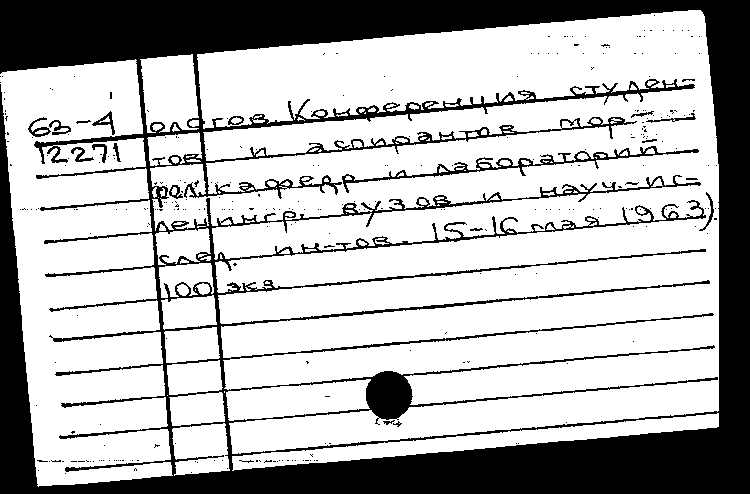 63-4 ологов. Конференция студен-
12271 тов и аспирантов мор-
фол. кафедр и лабораторий
ленингр. вузов и науч.-ис-
след. ин-тов. 15-16 мая 1963).
100 экз.